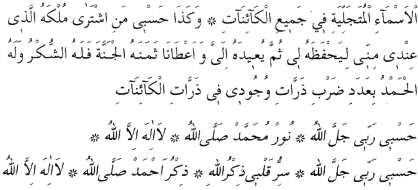 الْاَسْمَآءِ الْمُتَجَلِّيَةِ فِي جَمِيعِ الْكَائِنَاتِ * وَكَذَا حَسْبِي مَنِ اشْتَرٰى مُلْكَهُ الَّذِى
عِنْدِى مِنِّى لِيَحْفَظَهُ لِى ثُمَّ يُعِيدَهُ اِلَىَّ وَ اَعْطَانَا ثَمَنَهُ الْجَنَّةَ فَلَهُ الشُّكْرُ وَلَهُ
الْحَمْدُ بِعَدَدِ ضَرْبِ ذَرَّاتِ وُجُودِى فِى ذَرَّاتِ الْكَائِنَاتِ
حَسْبِى رَبِّى جَلَّ اللهُ * نُورْ مُحَمَّدْ صَلَّى اللهُ * لَا اِلٰهَ اِلاَّ اللهُ *
حَسْبِى رَبِّى جَلَّ اللهُ * سِرُّ قَلْبِى ذِكْرُ اللهِ * ذِكْرُ اَحْمَدْ صَلَّى اللهُ * لَا اِلٰهَ اِلاَّ اللهُ